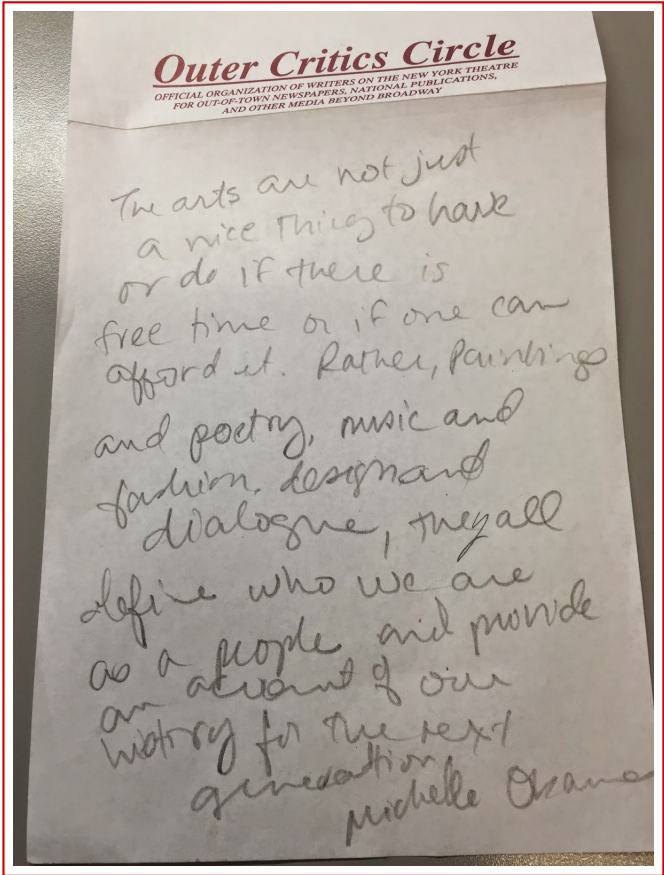 Outer Critics Circle
OFFICIAL ORGANIZATION OF WRITERS ON THE NEW YORK THEATRE
FOR OUT-OF-TOWN NEWSPAPERS, NATIONAL PUBLICATIONS,
AND OTHER MEDIA BEYOND BROADWAY
The arts are not just
a nice thing to have
or do if there is
free time or if one can
afford it. Rather, Paintings
and poetry, music and
fashion, design and
dialogue, they all
define who we are
as a people and provide
an account of our
history for the next
generation
Michelle Obama